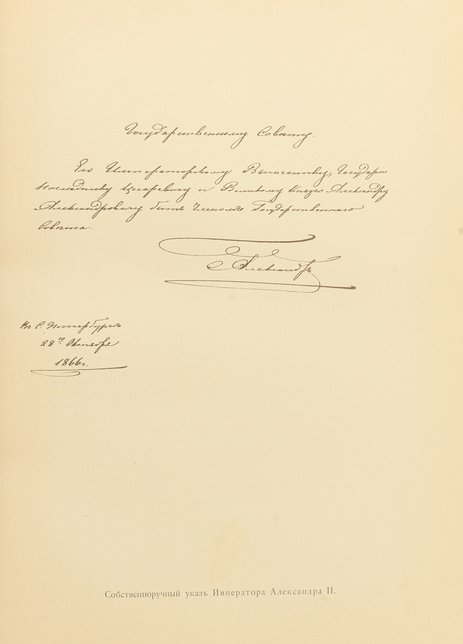 Государственному Совѣту.
Его Императорскому Высочеству, Государю
Наслѣднику Цесаревичу и Великому Князю Александру
Александровичу быть Членомъ Государственнаго
Совѣта.
Александръ
Въ С. Петербургѣ
28го Октября
1866г.
Собственноручный указъ Императора Александра II.